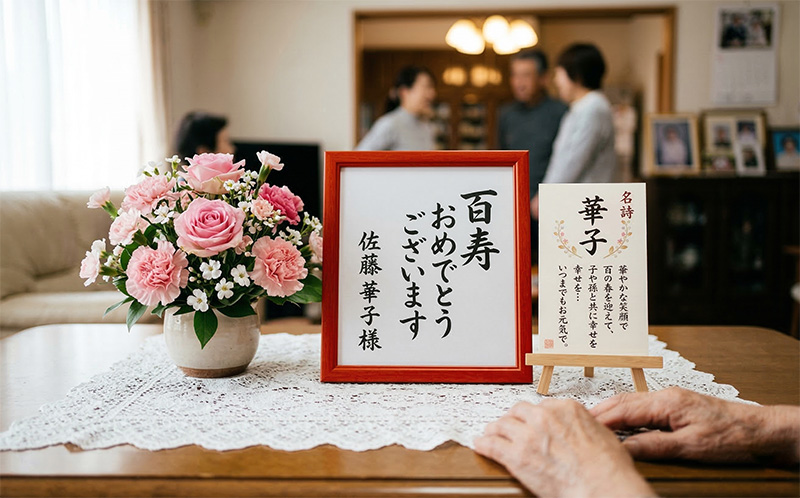 百寿
おめでとう
ございます
佐藤 華子様
名詩
華子
華やかな笑顔で
百の春を迎えて、
子や孫と共に幸せを
幸せを…
いつまでもお元気で。